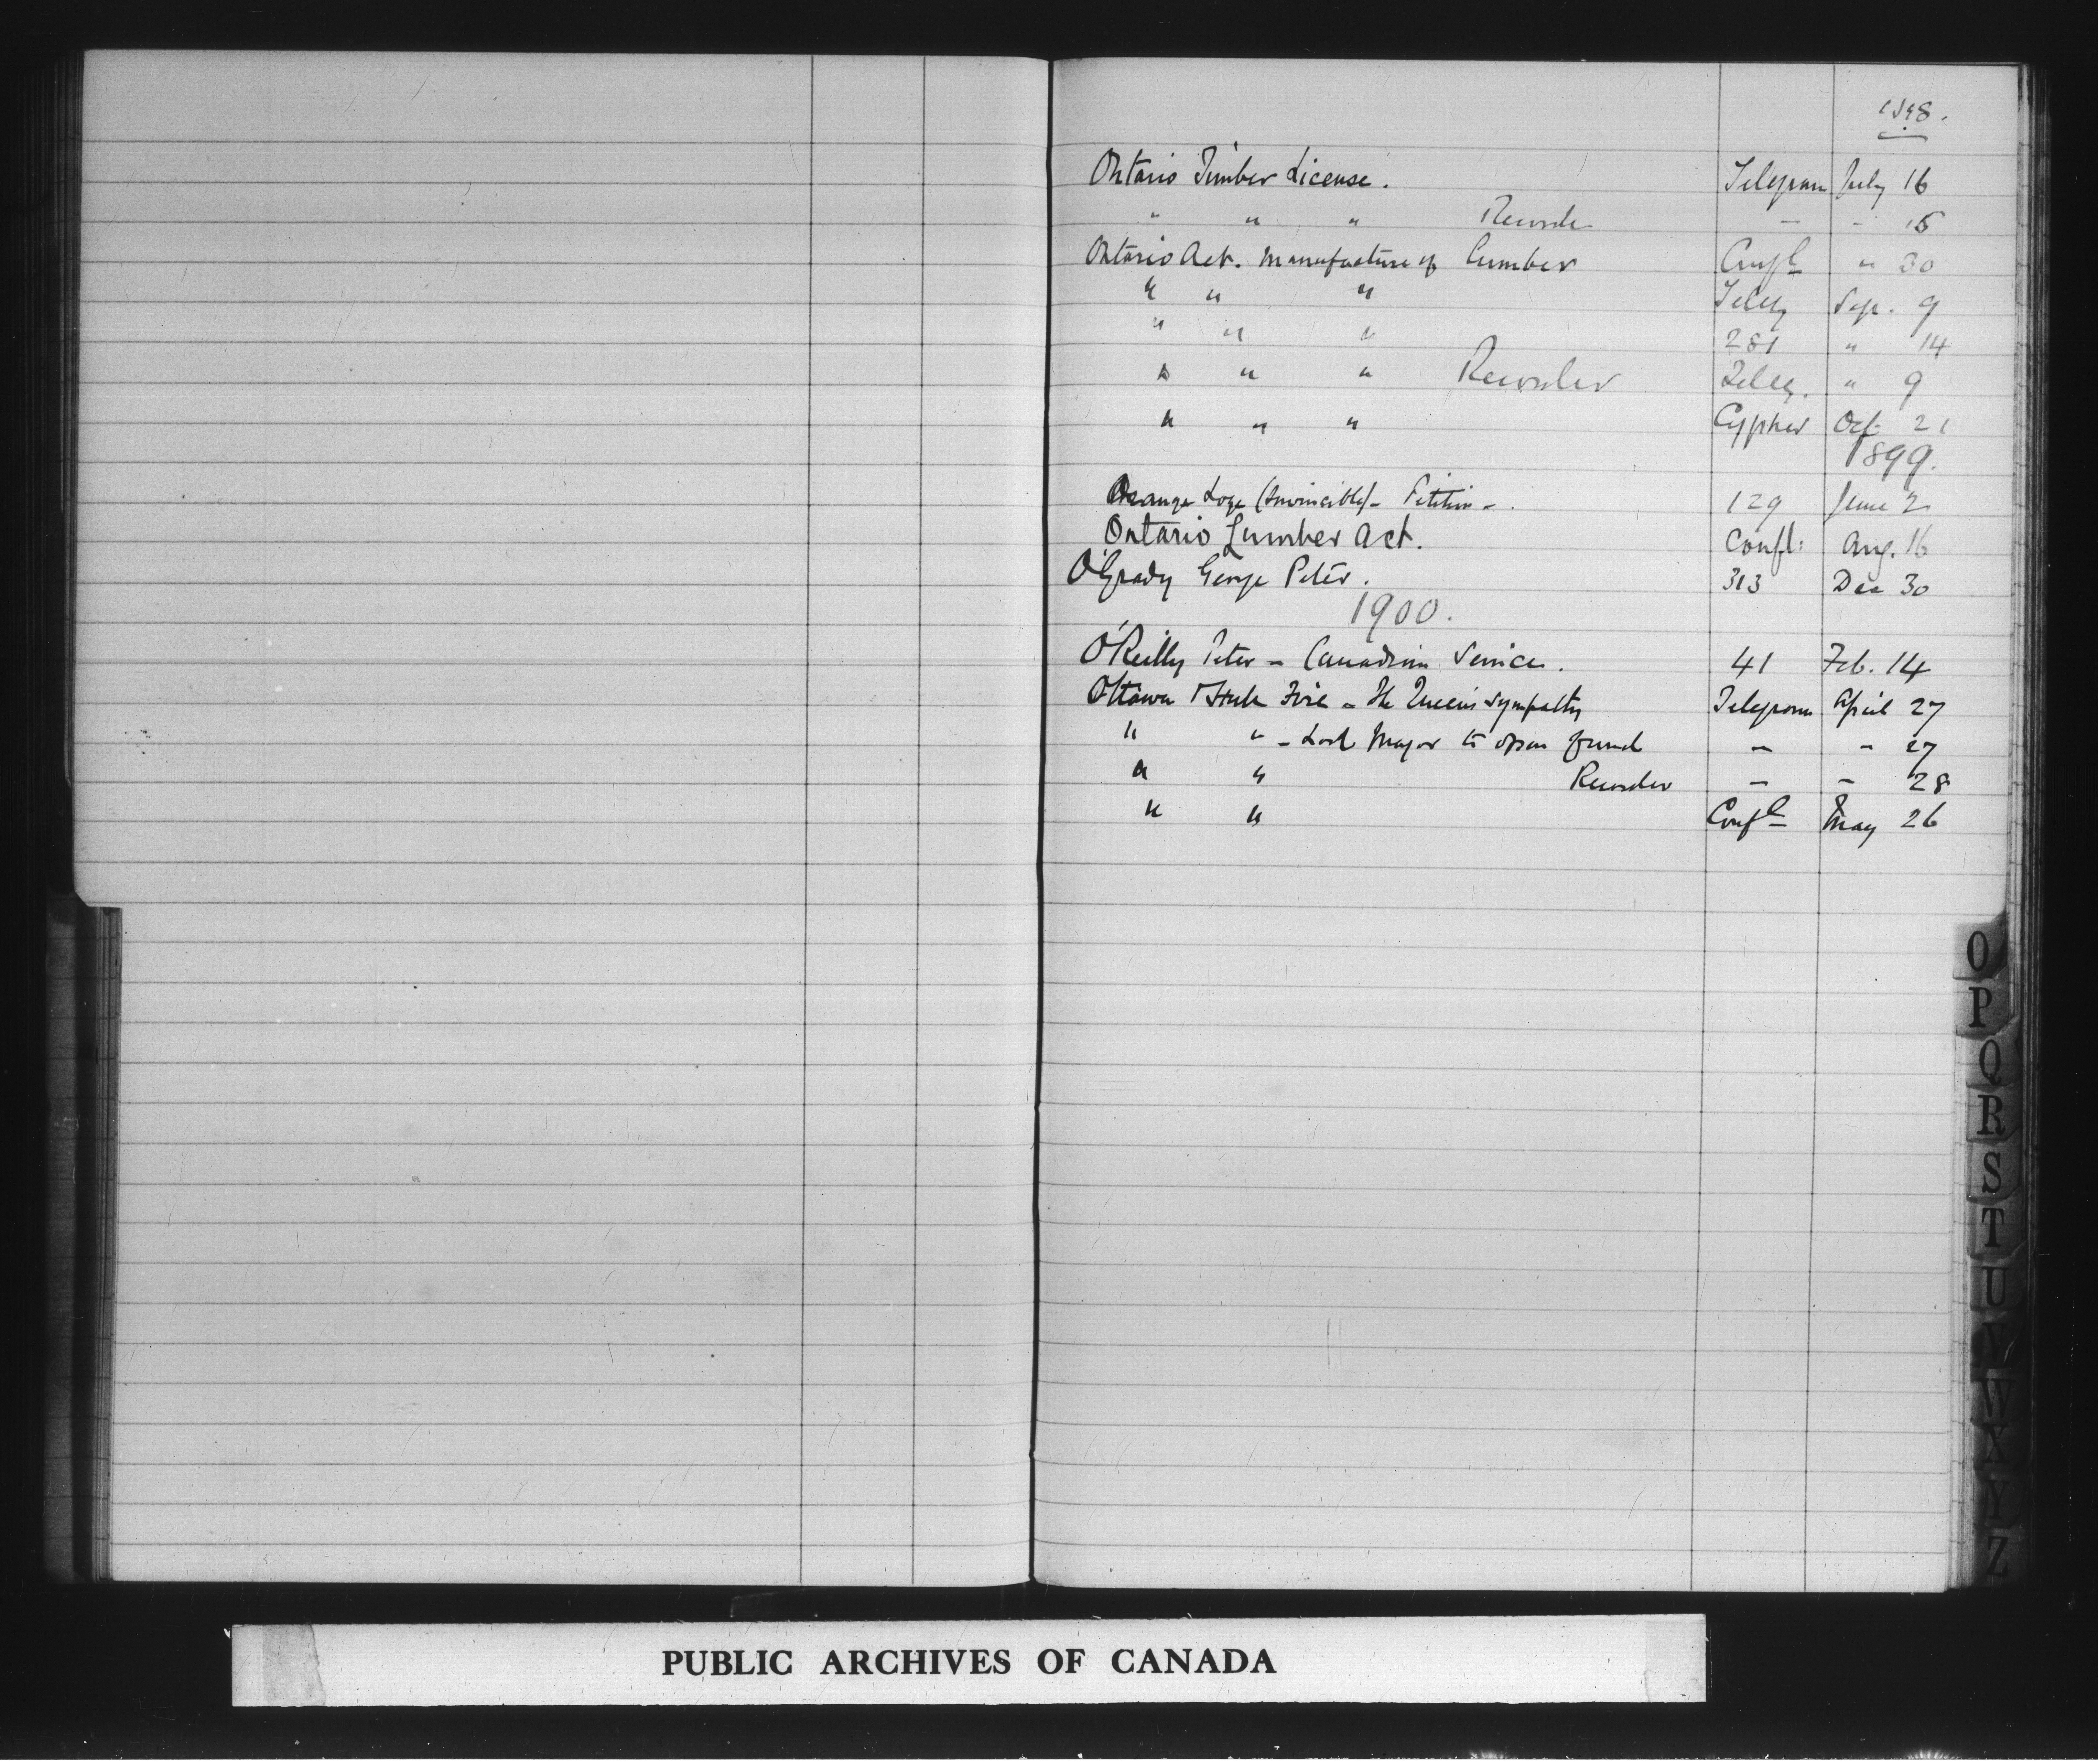 1898.
Ontario Timber License. Telegram July 16
" " " Recorder - - 15
Ontario Act. Manufacture of Lumber Confl " 30
" " " Teleg Sep. 9
" " " 281 " 14
" " " Recorder Teleg. " 9
" " " Cypher Oct 21
1899.
Orange Loge (Invincible) - Petition - 129 June 2
Ontario Lumber Act. Confl: Aug. 16
O'Grady George Peter. 313 Dec 30
1900.
O'Reilly Peter - Canadian Service. 41 Feb. 14
Ottawa Hull Fire - The Queen's sympathy Telegram April 27
" " - Lord Mayor to open fund - - 27
" " Recorder - - 28
" " Confl May 26
O
P
Q
R
S
T
U
V
W
X
Y
Z
PUBLIC ARCHIVES OF CANADA